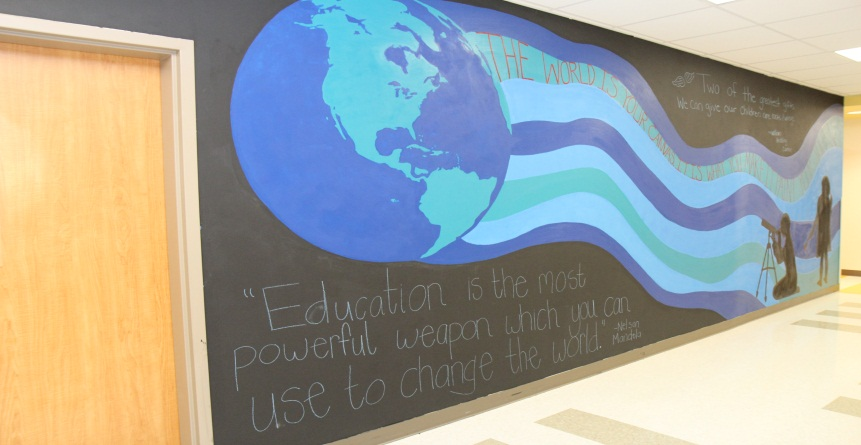 THE WORLD IS YOUR
Two of the greatest gifts
We can give our children are
"Education is the most
powerful weapon which you can
use to change the world."
-Nelson
Mandela